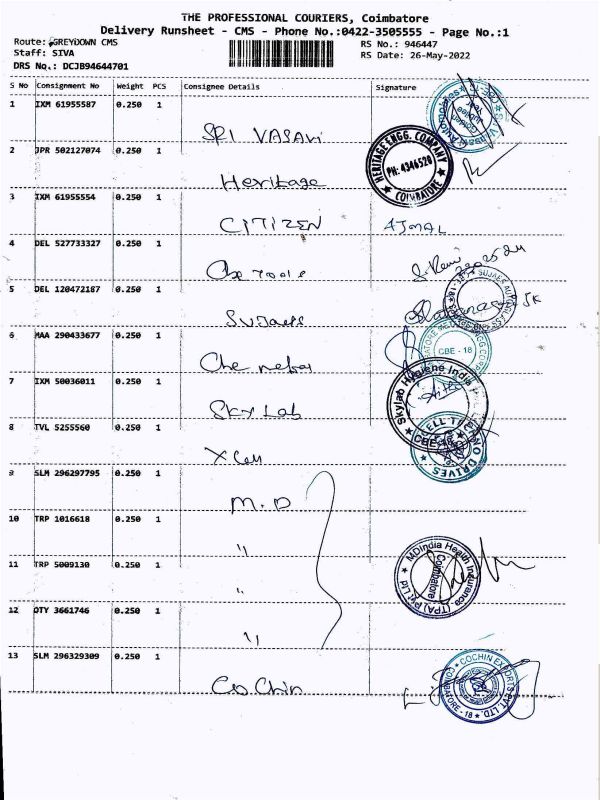 THE PROFESSIONAL COURIERS, Coimbatore
Delivery Runsheet - CMS - Phone No.:0422-3505555 - Page No.:1
Route: GREYDOWN CMS
RS No.: 946447
Staff: SIVA
RS Date: 26-May-2022
DRS No.: DCJB94644701
S No Consignment No Weight PCS Consignee Details Signature
1 IXM 61955587 0.250 1
SRI VASAVI
2 JPR 502127074 0.250 1
HERITAGE ENGG. COMPANY
PH: 4346520
COIMBATORE
Heritage
3 IXM 61955554 0.250 1
CITIZEN AJMAL
4 DEL 527733327 0.250 1
Cbe Tools
5 DEL 120472187 0.250 1
Sujaess
6 MAA 290433677 0.250 1
CBE - 18
7 IXM 50036011 0.250 1
Skylab Hygiene India
Sky Lab
8 TVL 5255560 0.250 1
CBE-18
DRIVES
X Cell
9 SLM 296297795 0.250 1
M.D
10 TRP 1016618 0.250 1
"
11 TRP 5009130 0.250 1
MDIndia Health Insurance (TPA) Pvt Ltd
Coimbatore
"
12 OTY 3661746 0.250 1
"
13 SLM 296329309 0.250 1
COCHIN EXPORTS PVT. LTD
COIMBATORE - 18
Co Chin